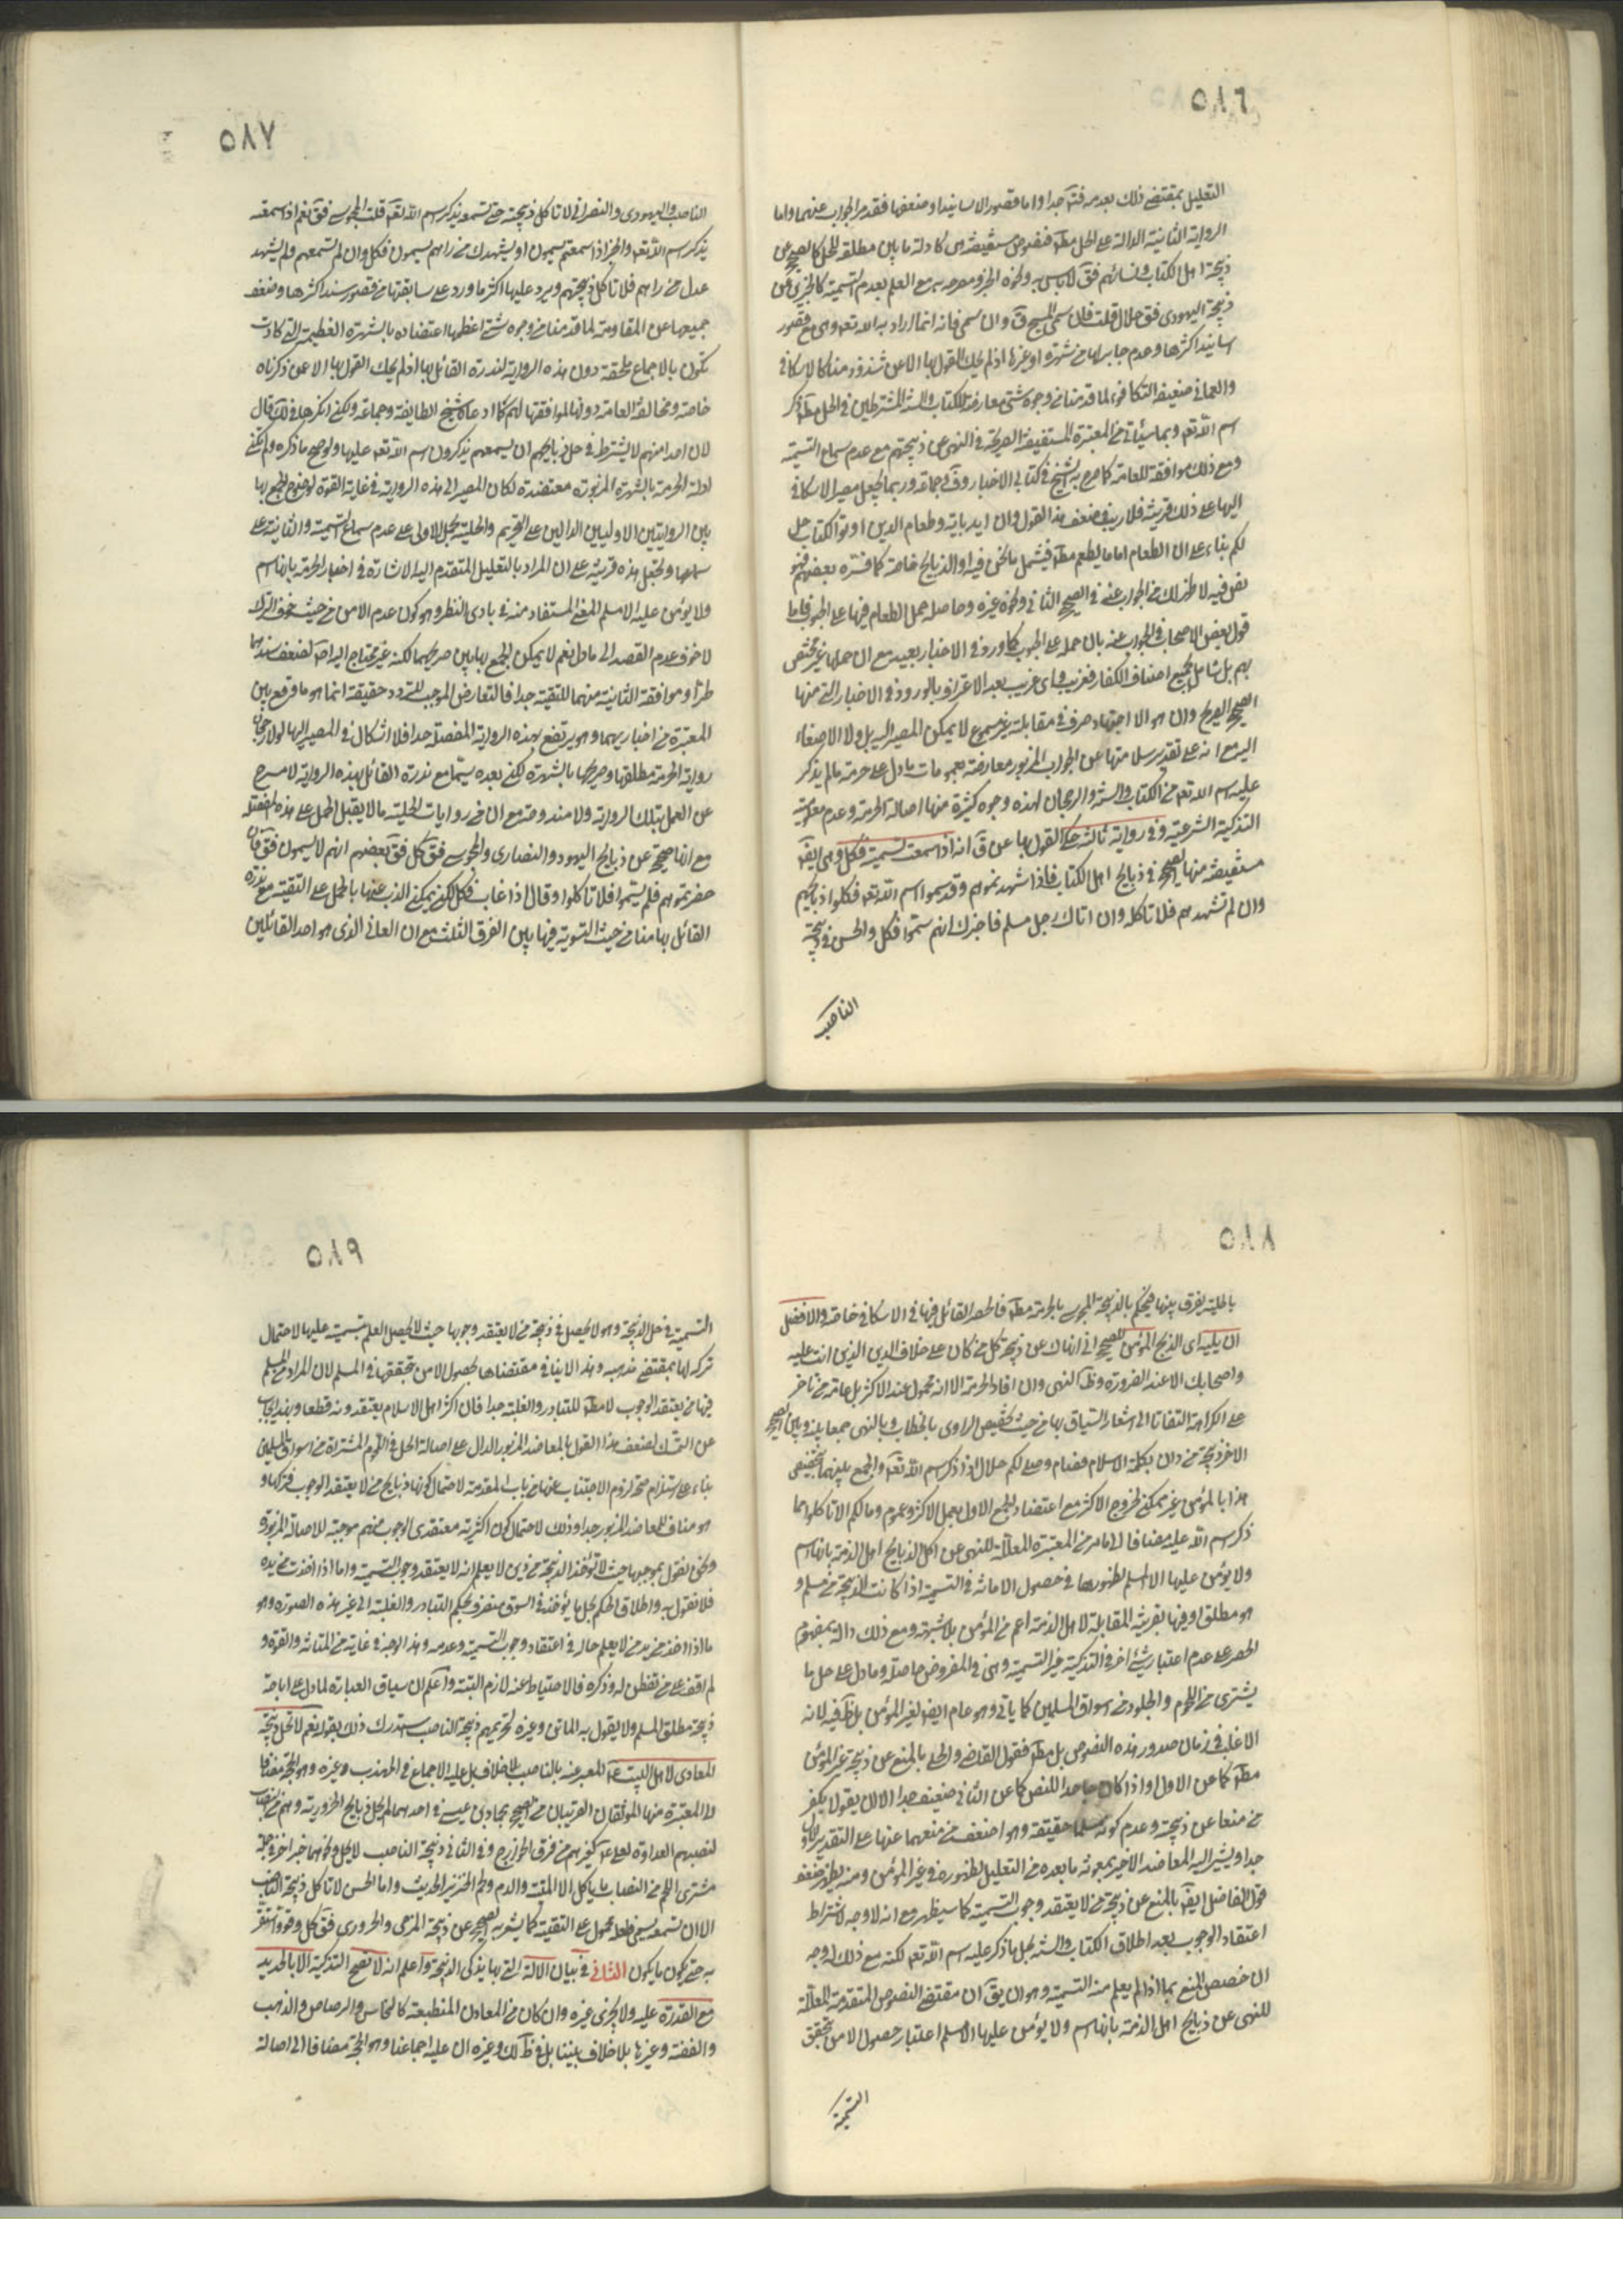 ٥٨٦
التعليل بمقتضى ذلك بعد معرفته جدا واما قصور الاسانيد او ضعفها فقد مر الجواب عنهما واما
الرواية الثانية الدالة على الحل مطلقا فنصوص مستفيضة هى كادلة ما بين مطلقة للحل كالصحيح عن
ذبيحة اهل الكتاب ونسائهم فق لا باس به ونحوه الخبر ومصرحة به مع العلم بعدم التسمية كالخبرين عن
ذبيحة اليهودى فق حلال قلت فان سمى المسيح ق وان سمى فانه انما اراد به الله تعه وهى مع قصور
اسانيد اكثرها وعدم جابر لها من شهرة او غيرها اذ لم يحك القول بها الا عن شذوذ منا كالاسكافى
والعمانى ضعيفة التكافوء لما قدمنا من وجوه شتى معارضة للكتاب والسنة المشترطين فى الحل مطه ذكر
اسم الله تعه وبما سياتى من المعتبرة المستفيضة الصريحة فى النهى عن ذبيحتهم مع عدم سماع التسمية
ومع ذلك موافقة للعامة كما صرح به الشيخ فى كتابى الاخبار وفاقا لجماعة وربما يجعل مصير الاسكافى
اليها على ذلك قرينة فلا ريب فى ضعف هذا القول وان ايد باية وطعام الذين اوتوا الكتاب حل
لكم بناء على ان الطعام اما ما يطعم مطه فيشمل ما نحن فيه او الذبايح خاصة كما فسره بعضهم فهو
نص فيه لا ظهر لك من الجواب عنه فى الصحيح الثانى ونحوه غيره وحاصله حمل الطعام فيها على الحبوب فما
قول بعض الاصحاب فى الجواب عنه بان حمله على الحبوب كما ورد فى الاخبار بعيد مع ان حملها غير مختص
بهم بل شامل لجميع اصناف الكفار فغريب واى غريب بعد الاعتراف بالورود فى الاخبار التى منها
الصحيح الصريح وان هو الا اجتهاد صرف فى مقابلة غير مسموع لا يمكن المصير اليه بل ولا الاصغاء
اليه مع انه على تقدير سلامتها عن الجواب المزبور معارضة بعمومات ما دل على حرمة ما لم يذكر
عليه اسم الله تعه من الكتاب والسنة والرجحان لهذه وجوه كثيرة منها اصالة الحرمة وعدم معلومية
التذكية الشرعية وفى رواية ثالثة حكى القول بها عن ق انه اذا سمعت تسميته فكل وهى ايضا
مستفيضة منها الصحيح فى ذبايح اهل الكتاب فاذا شهدتموهم وقد سموا اسم الله تعه فكلوا ذبايحهم
وان لم تشهدهم فلا تاكله وان اتاك رجل مسلم فاخبرك انهم سموا فكل والحسن فى ذبيحة
الناصب
٥٨٧
الناصب واليهودى والنصرانى لا تاكل ذبيحته حتى تسمعه يذكر اسم الله تعه قلت المجوسى فق نعم اذا سمعته
يذكر اسم الله تعه والخبر اذا سمعتم يسمون او يشهد لك من راهم يسمون فكل وان لم تسمعهم ولم يشهد
عدل من راهم فلا تاكل ذبيحتهم ويرد عليها اكثر ما ورد على سابقتها من قصور سند اكثرها وضعف
جميعها عن المقاومة لما قدمنا من وجوه شتى اعظمها اعتضاده بالشهرة العظيمة التى كادت
تكون بالاجماع ملحقة دون هذه الرواية لندرة القائل بها اذ لم يحك القول بها الا عن ذكرناه
خاصة ومخالفة العامة دونها لموافقتها لهم كما ادعاه شيخ الطايفة وجماعة ولكن انكرها فى لك قال
لان احدا منهم لا يشترط فى حل ذبايحهم ان يسمعهم يذكرون اسم الله تعه عليها ولو صح ما ذكره ولم تكن
ادلة الحرمة بالشهرة المزبورة معتضدة لكان المصير الى هذه الرواية فى غاية القوة لوضوح الجمع بها
بين الروايتين الاوليين الدالين على التحريم والحلية بحمل الاولى على عدم سماع التسمية والثانية على
سماعها وتجعل هذه قرينة على ان المراد بالتعليل المتقدم اليه الاشارة فى اخبار الحرمة بانها اسم
ولا يؤمن عليه الا مسلم المعنى المستفاد منه فى بادى النظر وهو كون عدم الامن من حيث خوف الترك
لا خوف عدم القصد الى مادل نعم لا يمكن الجمع بها بين صريحهما لكنه غير محتاج اليه لضعف سندهما
طرا وموافقة الثانية منهما للتقية جدا فالتعارض الموجب للتردد حقيقة انما هو ما وقع بين
المعتبرة من اخباريهما وهو يرتفع بهذه الرواية المفصلة جدا فلا اشكال فى المصير اليها لولا رجحان
رواية الحرمة مطلقها وصريحها بالشهرة لكن بعده سيما مع ندرة القائل بهذه الرواية لا مسرح
عن العمل بتلك الرواية ولا مندوحة مع ان فى روايات الحلية ما لا يقبل الحمل على هذه المفصلة
مع انها صحيحة عن ذبايح اليهود والنصارى والمجوس فق كل فق بعضهم انهم لا يسمون فق فان
حضرتموهم فلم يسموا فلا تاكلوا وقال اذا غاب فكل لكن يمكن الذب عنها بالحمل على التقية مع ندرة
القائل بها منا من حيث التسوية فيها بين الفرق الثلث مع ان العمانى الذى هو احد القائلين
٥٨٨
بالحلية يفرق بينها فيحكم بالذبيحة المجوسى بالحرمة مطه فانحصر القائل فيها فى الاسكافى خاصة والافضل
ان يليه اى الذبح المؤمن للصحيح انى انهاك عن ذبيحة كل من كان على خلاف الدين الذى انت عليه
واصحابك الا عند الضرورة وظاهر النهى وان افاد الحرمة الا انه محمول عند الاكثر بل عامة من تاخر
على الكراهة التفاتا الى اشعار السياق بها من حيث تخصيص الراوى بالخطاب وبالنهى جمعا بينه وبين الصحيح
الاخر ذبيحة من دان بكلمة الاسلام فصام وصلى لكم حلال اذا ذكر اسم الله تعه والجمع بينهما بتخصيص
هذا بالمؤمن غير ممكن لخروج الاكثر مع اعتضاد الجمع الاول بعمل الاكثر وعموم ومالكم الا تاكلوا مما
ذكر اسم الله عليه مضافا الى ما مر من المعتبرة المعللة للنهى عن اكل الذبايح اهل الذمة بانها اسم
ولا يؤمن عليها الا المسلم لظهورها فى حصول الامانة فى التسمية اذا كانت الذبيحة من مسلم و
هو مطلق او فيها بقرينة المقابلة لاهل الذمة اعم من المؤمن بلا شبهة ومع ذلك دالة بمفهوم
الحصر على عدم اعتبار شئ اخر فى التذكية غير التسمية وهى فى المفروض حاصلة وما دل على حل ما
يشترى من اللحوم والجلود من اسواق المسلمين كما ياتى وهو عام ايضا لغير المؤمن بل ظاهر فيه لانه
الاغلب فى زمان صدور هذه النصوص بل مطه فقول القاضى والحلى بالمنع عن ذبيحة غير المؤمن
مطه كما عن الاول او اذا كان جاحدا للنص كما عن الثانى ضعيف جدا الا ان يقولا بكفر
من منعا عن ذبيحته وعدم كونه مسلما حقيقة وهو اضعف من منعهما عنها على التقدير الاول
جدا ويشير اليه المعاضد الاخير بمعونة ما بعده من التعليل لظهوره فى غير المؤمن ومنه يظهر ضعف
قول الفاضل ايضا بالمنع عن ذبيحة من لا يعتقد وجوب التسمية كما سيظهر مع انه لا وجه لاشتراط
اعتقاد الوجوب بعد اطلاق الكتاب والسنة بحل ما ذكر عليه اسم الله تعه لكنه مع ذلك له وجه
ان خصص المنع بما اذا لم يعلم منه التسمية وهو ان يق ان مقتضى النصوص المتقدمة المعللة
للنهى عن ذبايح اهل الذمة بانها اسم ولا يؤمن عليها الا المسلم اعتبار حصول الامن بتحقق
التسمية
٥٨٩
التسمية فى حل الذبيحة وهو لا يحصل فى ذبيحة من لا يعتقد وجوبها حيث لا يحصل العلم بتسميته عليها لاحتمال
تركه لها بمقتضى مذهبه وهذا لا ينافى مقتضاها بحصول الامن بتحققها فى المسلم لان المراد من المسلم
فيها من يعتقد الوجوب لا مطه للتبادر والغلبة جدا فان اكثر اهل الاسلام يعتقدونه قطعا وبهذا يجاب
عن التمسك لضعف هذا القول بالمعاضد المزبور الدال على اصالة الحل فى اللحوم المشتراة من اسواق المسلمين
بناء على استلزام صحته لزوم الاجتناب عنها من باب المقدمة لاحتمال كونها ذبايح من لا يعتقد الوجوب فتركها و
هو مناف للمعاضد المزبور جدا وذلك لاحتمال كون اكثرية معتقدى الوجوب منهم موجبة للاصالة المزبورة
ونحن نقول بموجبها حيث لا تؤخذ الذبيحة من يدى من لا يعلم انه لا يعتقد وجوب التسمية واما اذا اخذت من يده
فلا نقول به واطلاق الحكم بحل ما يؤخذ فى السوق منصرف بحكم التبادر والغلبة الى غير هذه الصورة وهو
ما اذا اخذ من يد من لا يعلم حاله فى اعتقاد وجوب التسمية وعدمه وهذا الوجه فى غاية من المتانة والقوة و
لم اقف على من تفطن له وذكره فالاحتياط عنه لازم البتة واعلم ان سياق العبارة لما دل على اباحة
ذبيحة مطلق المسلم ولا يقول به الماتن وغيره لتحريمهم ذبيحة الناصب استدرك ذلك بقوله نعم لا تحل ذبيحة
المعادى لاهل البيت ع المعبر عنه بالناصب بلا خلاف بل عليه الاجماع فى المهذب وغيره وهو الحجة مضافا
الى المعتبرة منها الموثقان القريبان من الصحيح بحمادى عيسى فى احدهما لم تحل ذبايح الحرورية وهم من
لنصبهم العداوة لعلى ع كغيرهم من فرق الخوارج وفى الثانى ذبيحة الناصب لا تحل ونحوهما خبر اخر فى جملة
مشترى اللحم من النصاب ما ياكل الا الميتة والدم ولحم الخنزير الحديث واما الحسن لا تاكل ذبيحة الناصب
الا ان تسمعه يسمى فلعله محمول على التقية كما يشير به الصحيح عن ذبيحة المرجى والحرورى فق كل وقر واستقر
به حتى يكون ما يكون الثانى فى بيان الالة التى بها يذكى الذبيحة واعلم انه لا تصح التذكية الا بالحديد
مع القدرة عليه ولا يجزى غيره وان كان من المعادن المنطبعة كالنحاس والرصاص والذهب
والفضة وغيرها بلا خلاف بيننا بل فى ظاهر لك وغيره ان عليه اجماعنا وهو الحجة مضافا الى اصالة